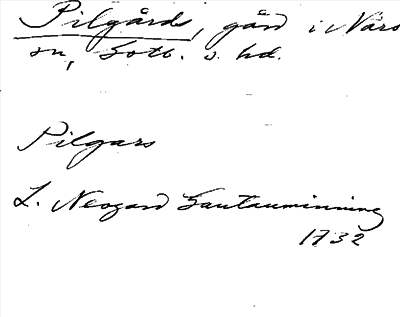 Pilgårds, gård i När s
sn, Gotl. s. hd.
Pilgars
L. Neogard Gautauminning
1732